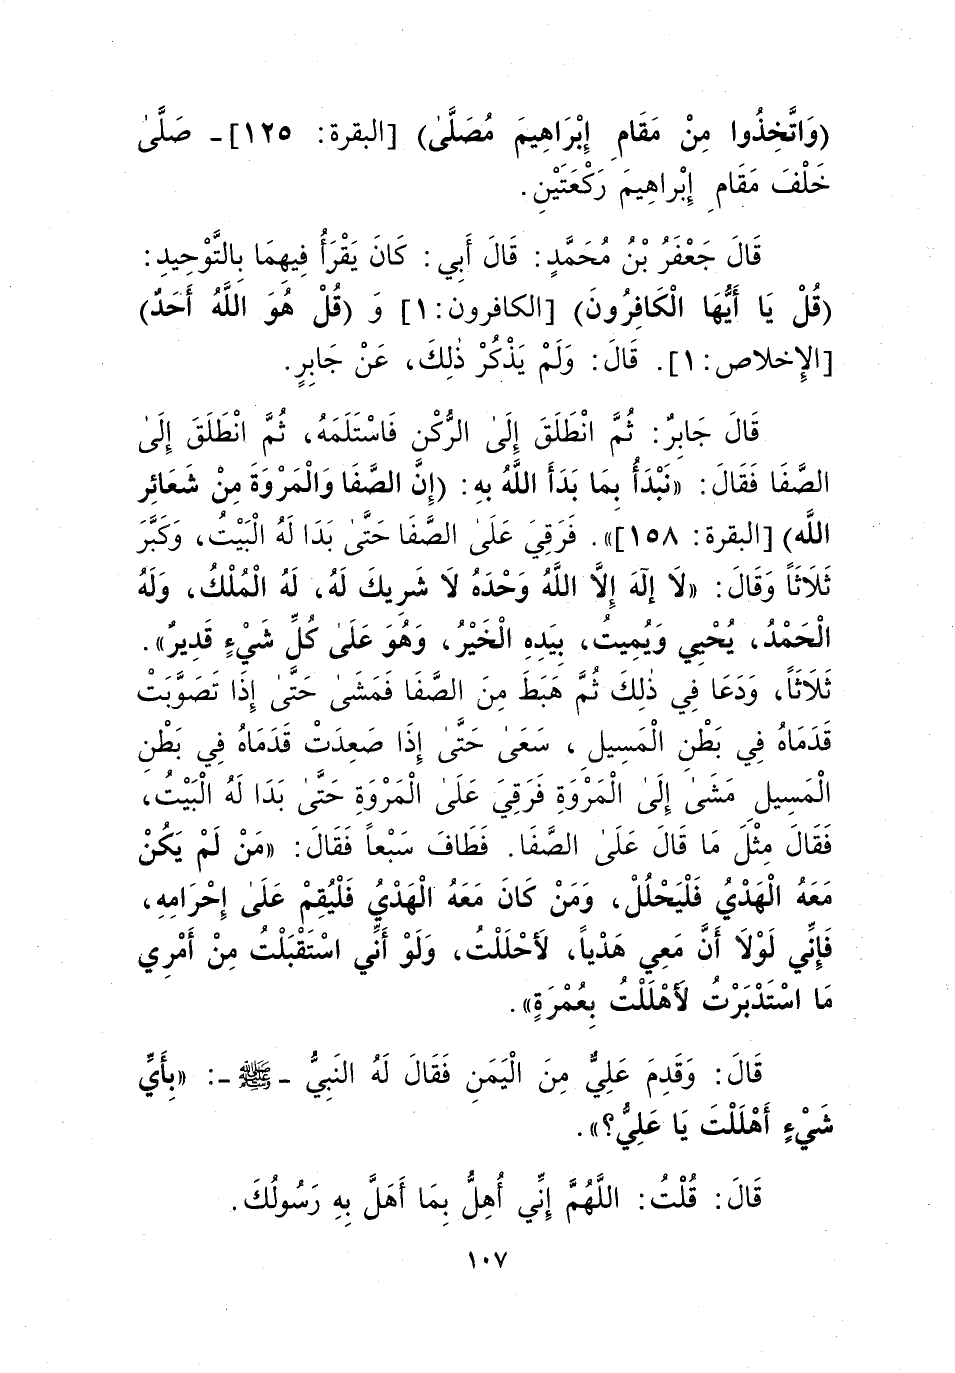 (وَاتَّخِذُوا مِنْ مَقَامِ إِبْرَاهِيمَ مُصَلَّىٰ) [البقرة: ١٢٥] ـ صَلَّىٰ
خَلْفَ مَقَامِ إِبْراهِيمَ رَكْعَتَيْنِ.
قَالَ جَعْفَرُ بْنُ مُحَمَّدٍ: قَالَ أَبي: كَانَ يَقْرَأُ فِيهِمَا بِالتَّوْحِيدِ:
(قُلْ يَا أَيُّهَا الْكَافِرُونَ) [الكافرون:١] وَ (قُلْ هُوَ اللَّهُ أَحَدٌ)
[الإِخلاص:١]. قَالَ: وَلَمْ يَذْكُرْ ذٰلِكَ، عَنْ جَابِرٍ.
قَالَ جَابِرٌ: ثُمَّ انْطَلَقَ إِلَىٰ الرُّكْنِ فَاسْتَلَمَهُ، ثُمَّ انْطَلَقَ إِلَىٰ
الصَّفَا فَقَالَ: «نَبْدَأُ بِمَا بَدَأَ اللَّهُ بِهِ: (إِنَّ الصَّفَا وَالْمَرْوَةَ مِنْ شَعَائِرِ
اللَّه) [البقرة: ١٥٨]». فَرَقِيَ عَلَىٰ الصَّفَا حَتَّىٰ بَدَا لَهُ الْبَيْتُ، وَكَبَّرَ
ثَلَاثَاً وَقَالَ: «لَا إلٓهَ إِلَّا اللَّهُ وَحْدَهُ لَا شَرِيكَ لَهُ، لَهُ الْمُلْكُ، وَلَهُ
الْحَمْدُ، يُحْيِي وَيُمِيتُ، بِيَدِهِ الْخَيْرُ، وَهُوَ عَلَىٰ كُلِّ شَيْءٍ قَدِيرٌ».
ثَلَاثَاً، وَدَعَا فِي ذٰلِكَ ثُمَّ هَبَطَ مِنَ الصَّفَا فَمَشَىٰ حَتَّىٰ إِذَا تَصَوَّبَتْ
قَدَمَاهُ فِي بَطْنِ الْمَسِيلِ، سَعَىٰ حَتَّىٰ إِذَا صَعِدَتْ قَدَمَاهُ فِي بَطْنِ
الْمَسِيلِ مَشَىٰ إِلَىٰ الْمَرْوَةِ فَرَقِيَ عَلَىٰ الْمَرْوَةِ حَتَّىٰ بَدَا لَهُ الْبَيْتُ،
فَقَالَ مِثْلَ مَا قَالَ عَلَىٰ الصَّفَا. فَطَافَ سَبْعاً فَقَالَ: «مَنْ لَمْ يَكُنْ
مَعَهُ الْهَدْيُ فَلْيَحْلُلْ، وَمَنْ كَانَ مَعَهُ الْهَدْيُ فَلْيُقِمْ عَلَىٰ إِحْرَامِهِ،
فَإِنِّي لَوْلَا أَنَّ مَعِي هَدْياً، لَأَحْلَلْتُ، وَلَوْ أَنِّي اسْتَقْبَلْتُ مِنْ أَمْرِي
مَا اسْتَدْبَرْتُ لَأَهْلَلْتُ بِعُمْرَةٍ».
قَالَ: وَقَدِمَ عَلِيٌّ مِنَ الْيَمَنِ فَقَالَ لَهُ النَبِيُّ ـ ﷺ ـ: «بِأَيِّ
شَيْءٍ أَهْلَلْتَ يَا عَلِيُّ؟».
قَالَ: قُلْتُ: اللَّهُمَّ إِنِّي أُهِلُّ بِمَا أَهَلَّ بِهِ رَسُولُكَ.
١٠٧